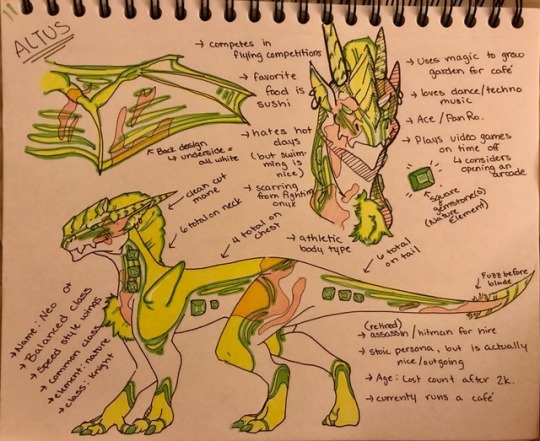 11
ALTUS
→ competes in
flying competitions
→ favorite
food is
sushi
→ hates hot
days
(but swim-
ming is
nice)
→ scarring
from fighting
onyx
→ athletic
body type
→ uses magic to grow
garden for café
→ loves dance/techno
music
→ Ace / PanRo.
→ Plays video games
on time off
↳ considers
opening an
arcade
square
gemstone(s)
(Nature
Element)
Back design
↳ underside =
all white
clean cut
mane
6 total on neck
4 total on
chest
6 total
on tail
Fuzz before
blade
→ Name: Neo
→ Balanced class
→ Speed style wings
→ common class
→ element: nature
→ class: Knight
(retired)
→ assassin / hitman for hire
→ stoic persona, but is actually
nice/outgoing
→ Age: Lost count after 2k.
→ currenty runs a café